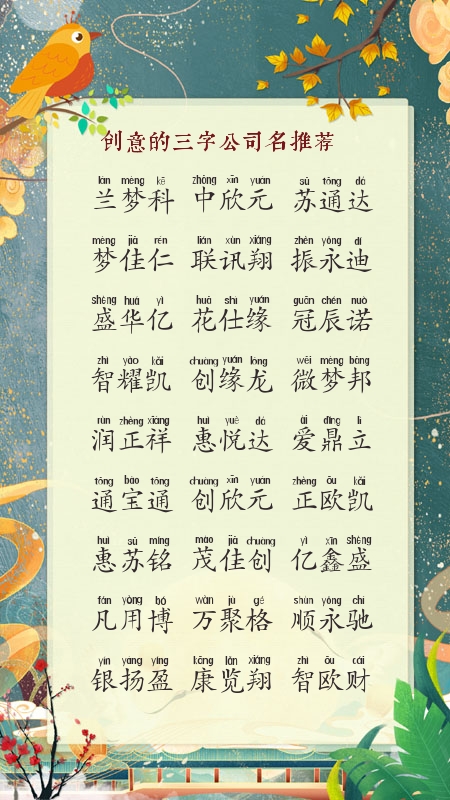 创意的三字公司名推荐
lán mèng kē zhōng xīn yuán sū tōng dá
兰梦科 中欣元 苏通达
mèng jiā rén lián xùn xiáng zhèn yǒng dí
梦佳仁 联讯翔 振永迪
shèng huá yì huā shì yuán guān chén nuò
盛华亿 花仕缘 冠辰诺
zhì yào kǎi chuàng yuán lóng wēi mèng bāng
智耀凯 创缘龙 微梦邦
rùn zhèng xiáng huì yuè dá ài dǐng lì
润正祥 惠悦达 爱鼎立
tōng bǎo tōng chuàng xīn yuán zhèng ōu kǎi
通宝通 创欣元 正欧凯
huì sū míng mào jiā chuàng yì xīn shèng
惠苏铭 茂佳创 亿鑫盛
fán yòng bó wàn jù gé shùn yǒng chí
凡用博 万聚格 顺永驰
yín yáng yíng kāng lǎn xiáng zhì ōu cái
银扬盈 康览翔 智欧财